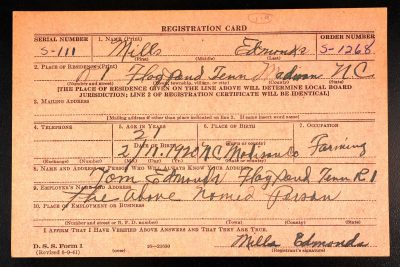 REGISTRATION CARD
SERIAL NUMBER 1. NAME (Print) ORDER NUMBER
S-111 Mills Edmonds S-1268
(First) (Middle) (Last)
2. PLACE OF RESIDENCE (Print)
R 1 Flag pand Tenn Madison N.C.
(Number and street) (Town, township, village, or city) (County) (State)
[THE PLACE OF RESIDENCE GIVEN ON THE LINE ABOVE WILL DETERMINE LOCAL BOARD
JURISDICTION; LINE 2 OF REGISTRATION CERTIFICATE WILL BE IDENTICAL]
3. MAILING ADDRESS
[Mailing address if other than place indicated on line 2. If same insert word same]
4. TELEPHONE 5. AGE IN YEARS 6. PLACE OF BIRTH 7. OCCUPATION
21
DATE OF BIRTH
1920 N.C. Madison Co Farming
(Exchange) (Number) (Mo.) (Day) (Yr.) (State or country)
8. NAME AND ADDRESS OF PERSON WHO WILL ALWAYS KNOW YOUR ADDRESS
Tom Edmonds Flag pand Tenn R 1
9. EMPLOYER'S NAME AND ADDRESS
The above Nomed Parson
10. PLACE OF EMPLOYMENT OR BUSINESS
(Number and street or R. F. D. number) (Town) (County) (State)
I AFFIRM THAT I HAVE VERIFIED ABOVE ANSWERS AND THAT THEY ARE TRUE.
D. S. S. Form 1 Mills Edmonds
(Revised 6-9-41) 16-21630 (Registrant's signature)